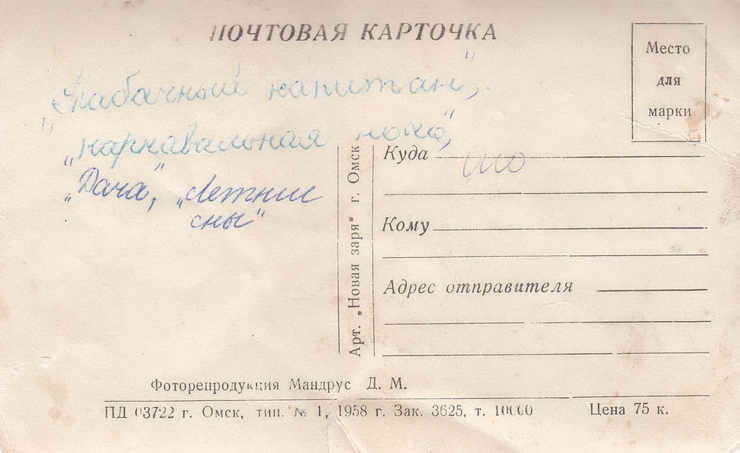 ПОЧТОВАЯ КАРТОЧКА
Место
для
марки
"Табачный капитан",
"Карнавальная ночь",
"Дача", "Летние
сны"
Арт. „Новая заря" г. Омск
Куда
Кому
Адрес отправителя
Фоторепродукция Мандрус Д. М.
ПД 03722 г. Омск, тип. № 1, 1958 г. Зак. 3625, т. 10000 Цена 75 к.